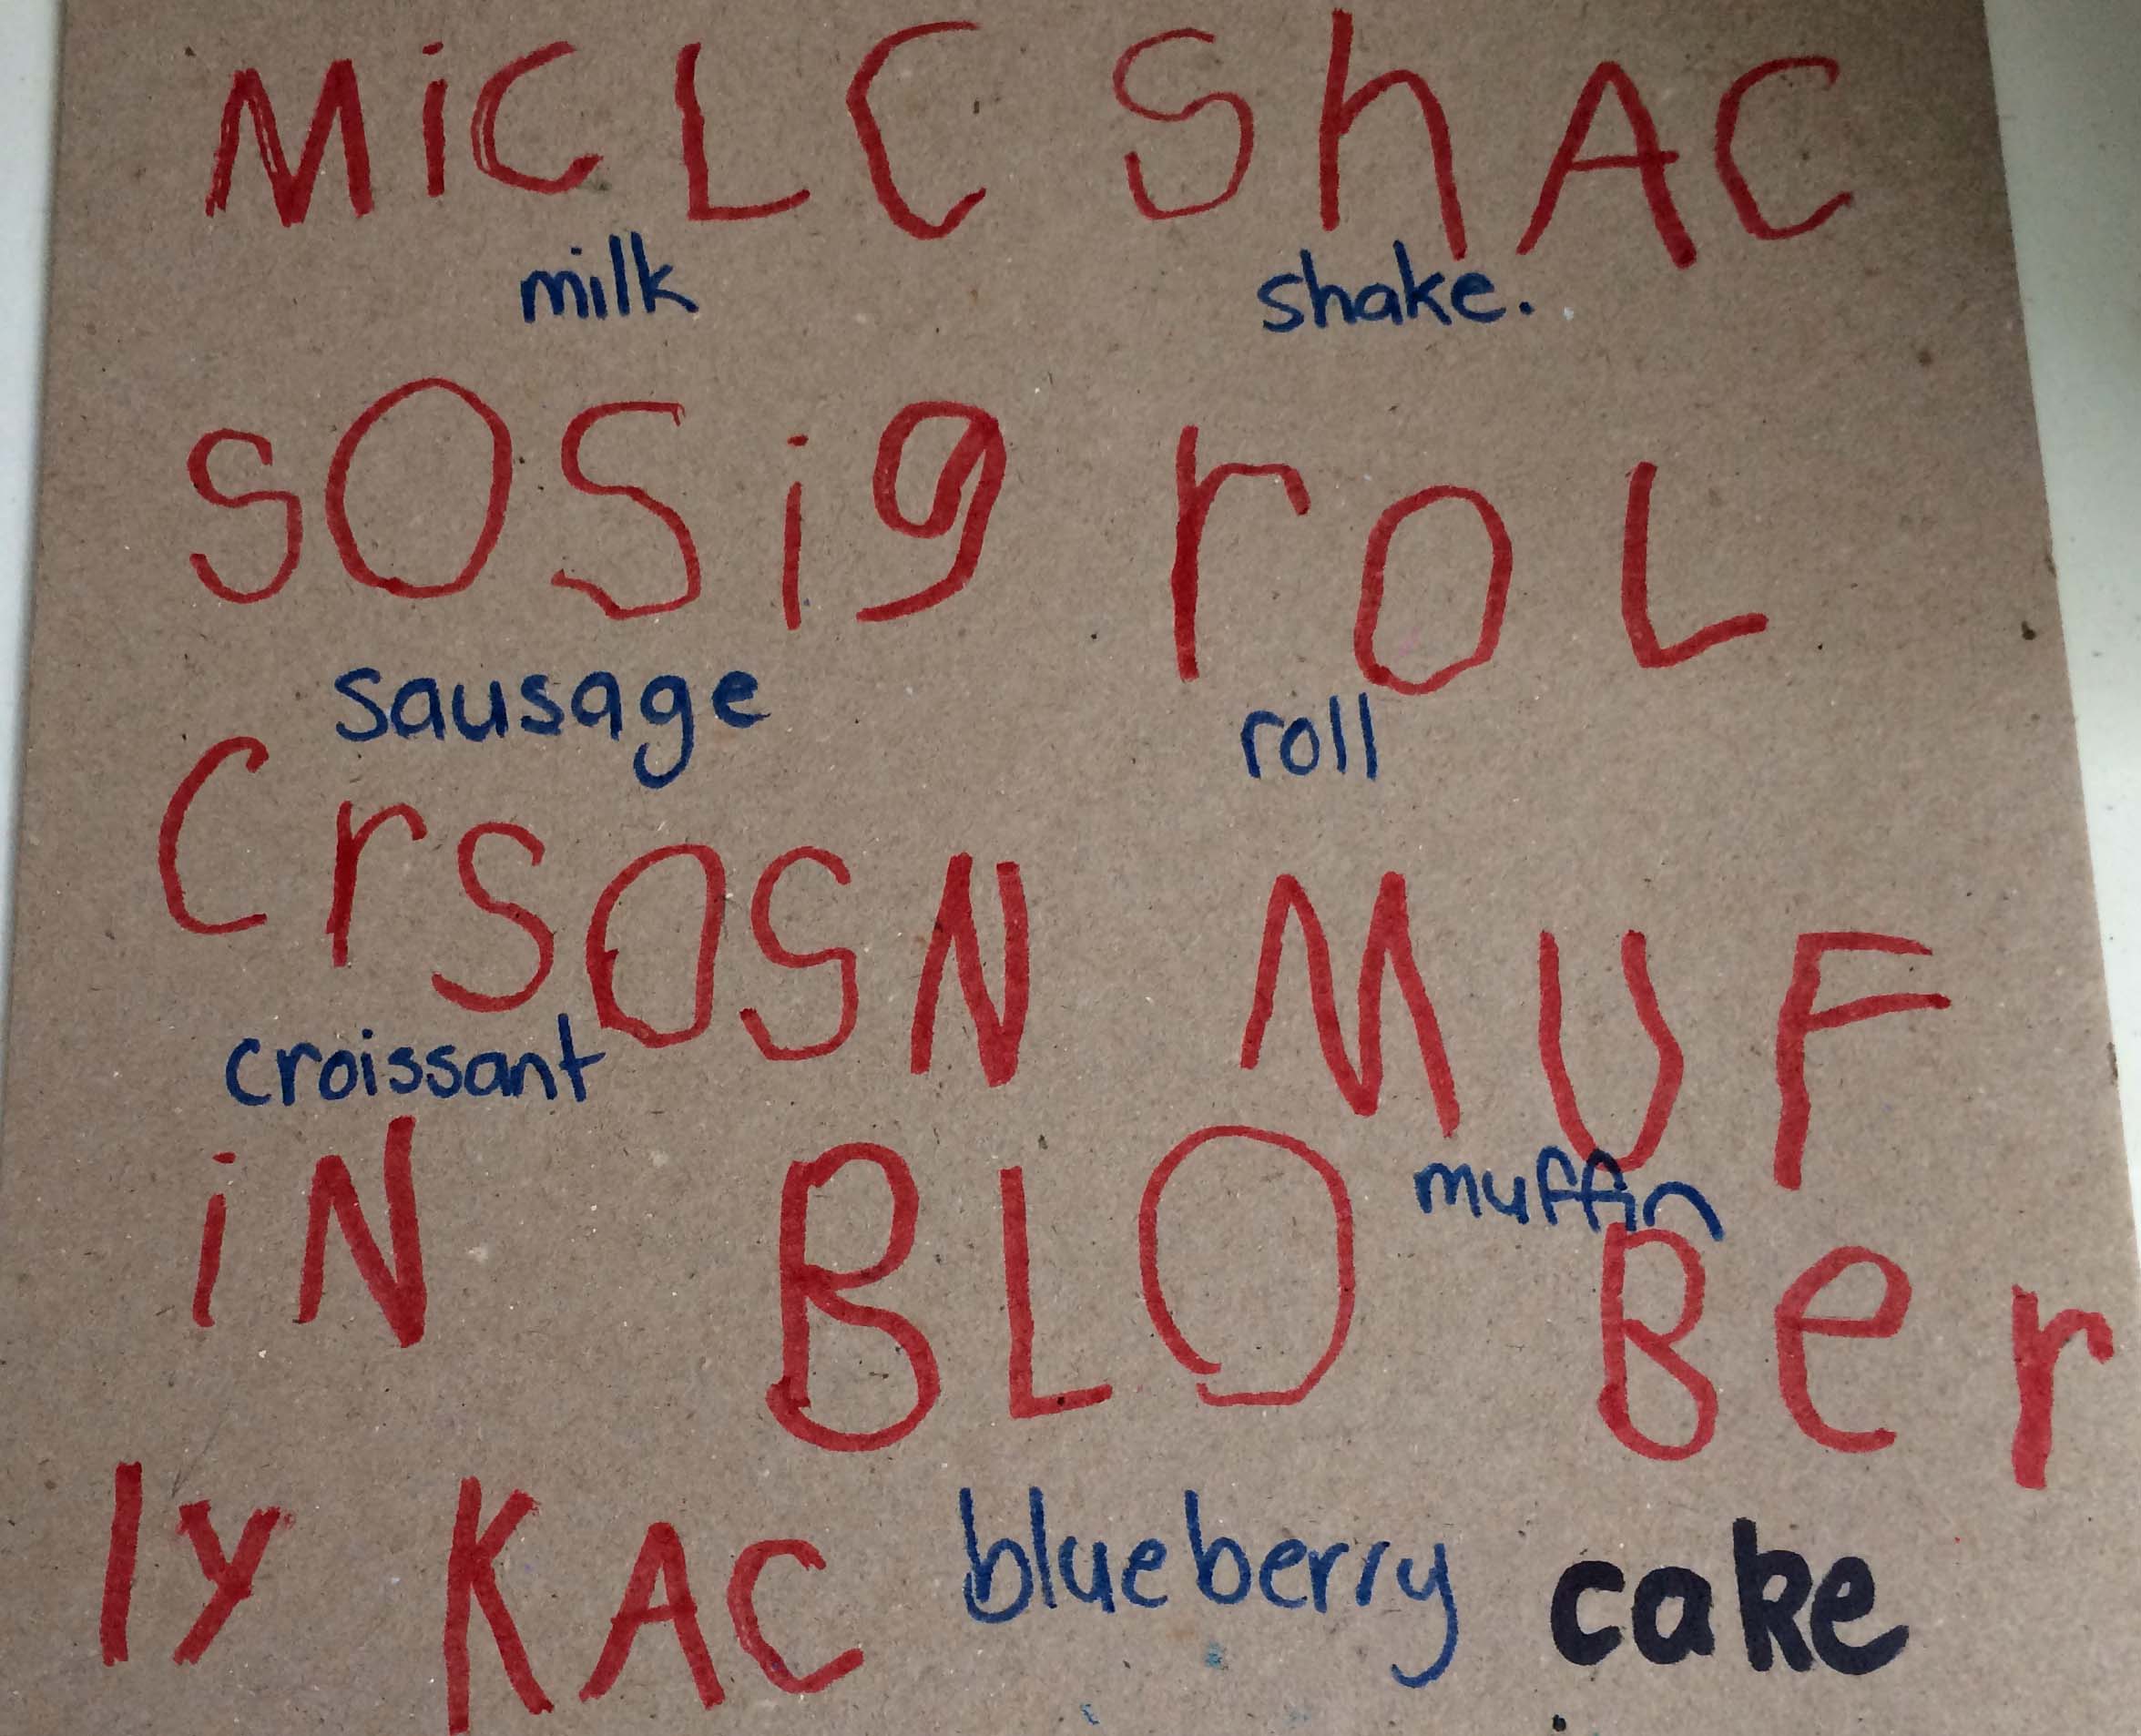 MiCLC ShAC
milk shake.
SOSig rOL
sausage roll
CrSOSN MUF
croissant muffin
iN BLO Ber
ly KAC blueberry cake